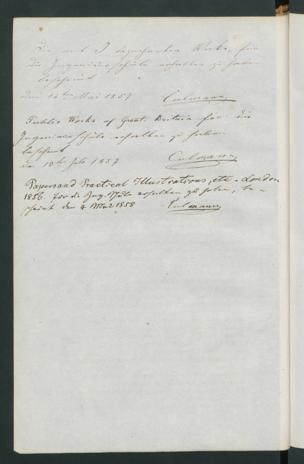 Die mit I bezeichneten Werke, für
die Ingenieurschule erhalten zu haben
bescheint
den 14ten Mai 1857 Culmann
Public Works of Great Britain für die
Ingenieurschule erhalten zu haben
bescheint
den 10ten Juli 1857 Culmann
Papers and Practical Illustrations, etc. London
1856. für die Ing. Schule erhalten zu haben, be-
scheint den 4 Mai 1858 Culmann